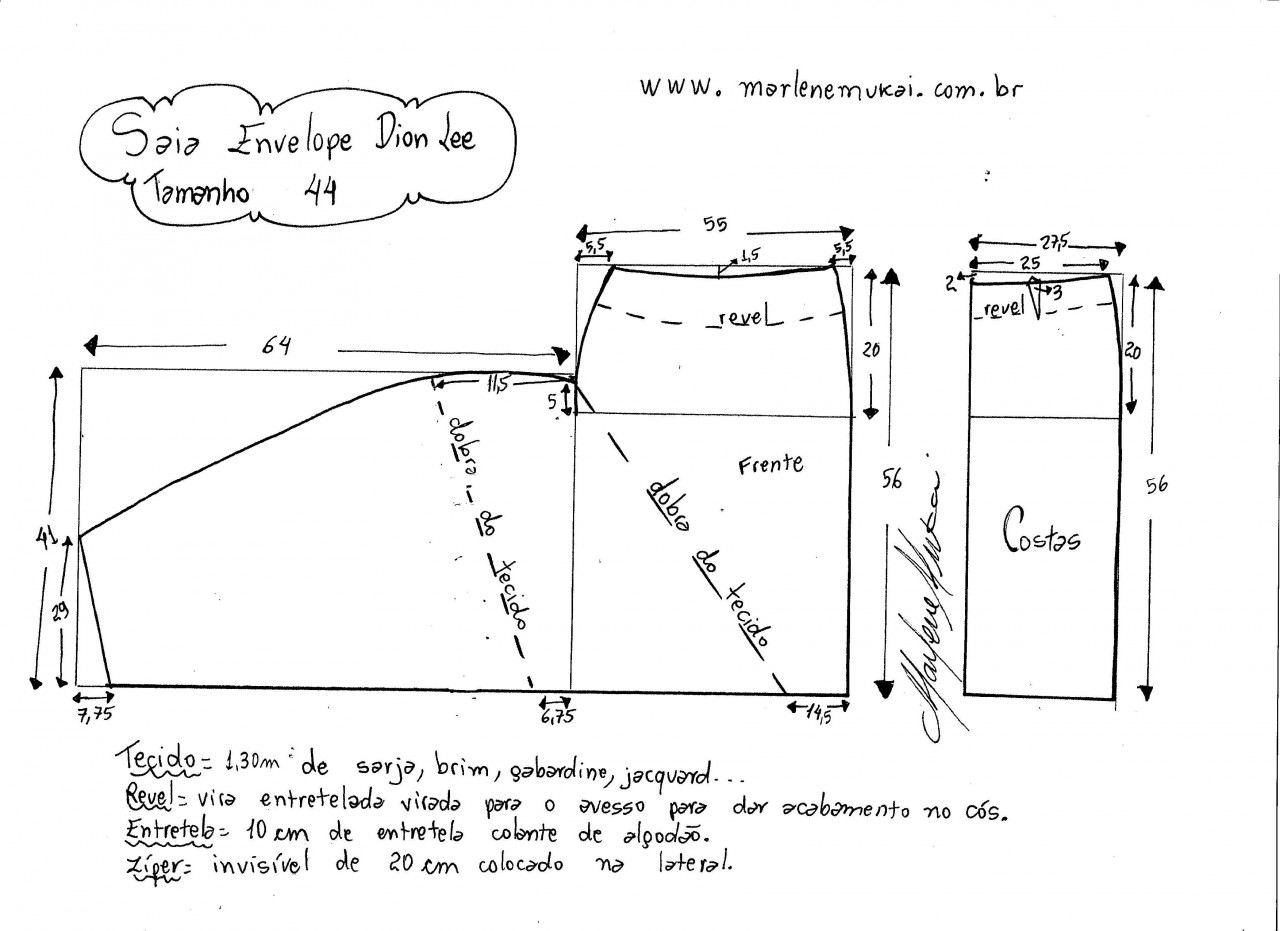 www.marlenemukai.com.br
Saia Envelope Dion Lee
Tamanho 44
55
5,5
1,5
5,5
revel
27,5
25
2
3
revel
64
11,5
5
20
20
dobra do tecido
Frente
dobra do tecido
56
56
Costas
41
29
Marlene Mukai
7,75
6,75
14,5
Tecido = 1,30m de sarja, brim, gabardine, jacquard...
Revel = vira entretelada virada para o avesso para dar acabamento no cós.
Entretela = 10 cm de entretela colante de algodão.
Zíper = invisível de 20 cm colocado na lateral.